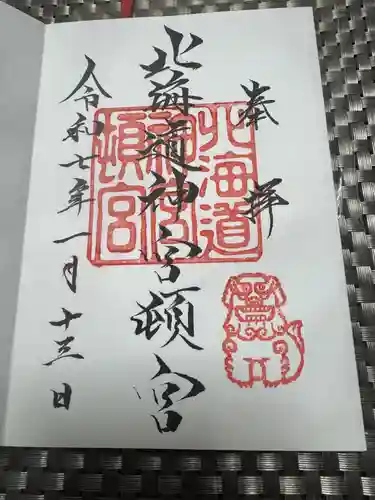 奉拝
北海道神宮頓宮
令和七年一月十三日
北海道
神宮
頓宮